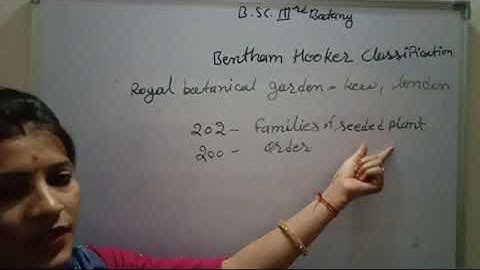 B.SC. IIIrd Botany
Bentham Hooker Classification
Royal botanical garden - kew, london
202 - families of seeded plant
200 - order